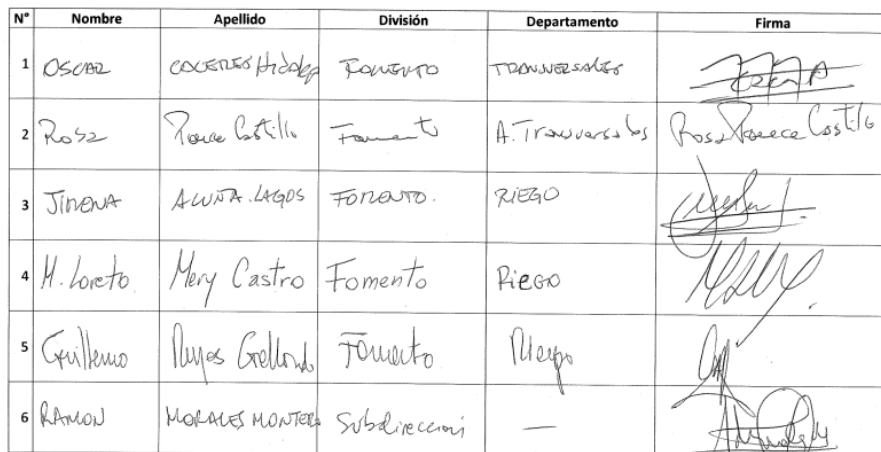 N° Nombre Apellido División Departamento Firma
1 OSCAR CACERES Hidalgo FOMENTO TRANVERSALES
2 Rosa Ponce Castillo Fomento A. Tranversales Rosa Ponce Castillo
3 JIMENA ACUÑA.LAGOS FOMENTO. RIEGO
4 M. Loreto Mery Castro Fomento RIEGO
5 Guillermo Reyes Fomento Riego
6 RAMON MORALES MONTERO Subdirección —